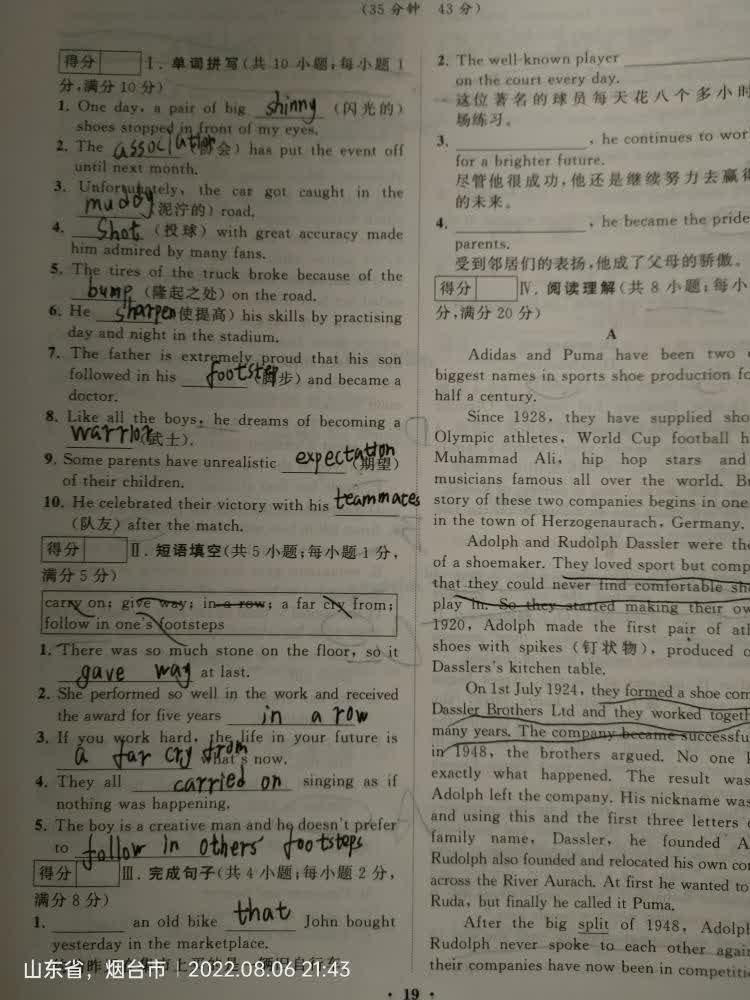 (35分钟 43分)
得分 Ⅰ. 单词拼写(共 10 小题;每小题 1
分,满分 10 分)
1. One day, a pair of big shinny (闪光的)
shoes stopped in front of my eyes.
2. The association (协会) has put the event off
until next month.
3. Unfortunately, the car got caught in the
muddy (泥泞的) road.
4. Shot (投球) with great accuracy made
him admired by many fans.
5. The tires of the truck broke because of the
bump (隆起之处) on the road.
6. He sharpen (使提高) his skills by practising
day and night in the stadium.
7. The father is extremely proud that his son
followed in his footstep (脚步) and became a
doctor.
8. Like all the boys, he dreams of becoming a
warrior (武士).
9. Some parents have unrealistic expectation (期望)
of their children.
10. He celebrated their victory with his teammates
(队友) after the match.
得分 Ⅱ. 短语填空(共 5 小题;每小题 1 分,
满分 5 分)
carry on; give way; in a row; a far cry from;
follow in one's footsteps
1. There was so much stone on the floor, so it
gave way at last.
2. She performed so well in the work and received
the award for five years in a row
3. If you work hard, the life in your future is
a far cry from what's now.
4. They all carried on singing as if
nothing was happening.
5. The boy is a creative man and he doesn't prefer
to follow in others' footsteps
得分 Ⅲ. 完成句子(共 4 小题;每小题 2 分,
满分 8 分)
1. an old bike that John bought
yesterday in the marketplace.
2. The well-known player
on the court every day.
这位著名的球员每天花八个多小时
场练习。
3. , he continues to wor
for a brighter future.
尽管他很成功,他还是继续努力去赢得
的未来。
4. , he became the pride
parents.
受到邻居们的表扬,他成了父母的骄傲。
得分 Ⅳ. 阅读理解(共 8 小题;每小
分,满分 20 分)
A
Adidas and Puma have been two
biggest names in sports shoe production fo
half a century.
Since 1928, they have supplied sho
Olympic athletes, World Cup football h
Muhammad Ali, hip hop stars and
musicians famous all over the world. B
story of these two companies begins in one
in the town of Herzogenaurach, Germany.
Adolph and Rudolph Dassler were the
of a shoemaker. They loved sport but comp
that they could never find comfortable sho
play in. So they started making their ow
1920, Adolph made the first pair of at
shoes with spikes (钉状物), produced o
Dasslers's kitchen table.
On 1st July 1924, they formed a shoe com
Dassler Brothers Ltd and they worked togeth
many years. The company became successfu
in 1948, the brothers argued. No one
exactly what happened. The result was
Adolph left the company. His nickname was
and using this and the first three letters
family name, Dassler, he founded A
Rudolph also founded and relocated his own com
across the River Aurach. At first he wanted to
Ruda, but finally he called it Puma.
After the big split of 1948, Adolph
Rudolph never spoke to each other again
their companies have now been in competiti
山东省，烟台市 | 2022.08.06 21:43
· 19 ·